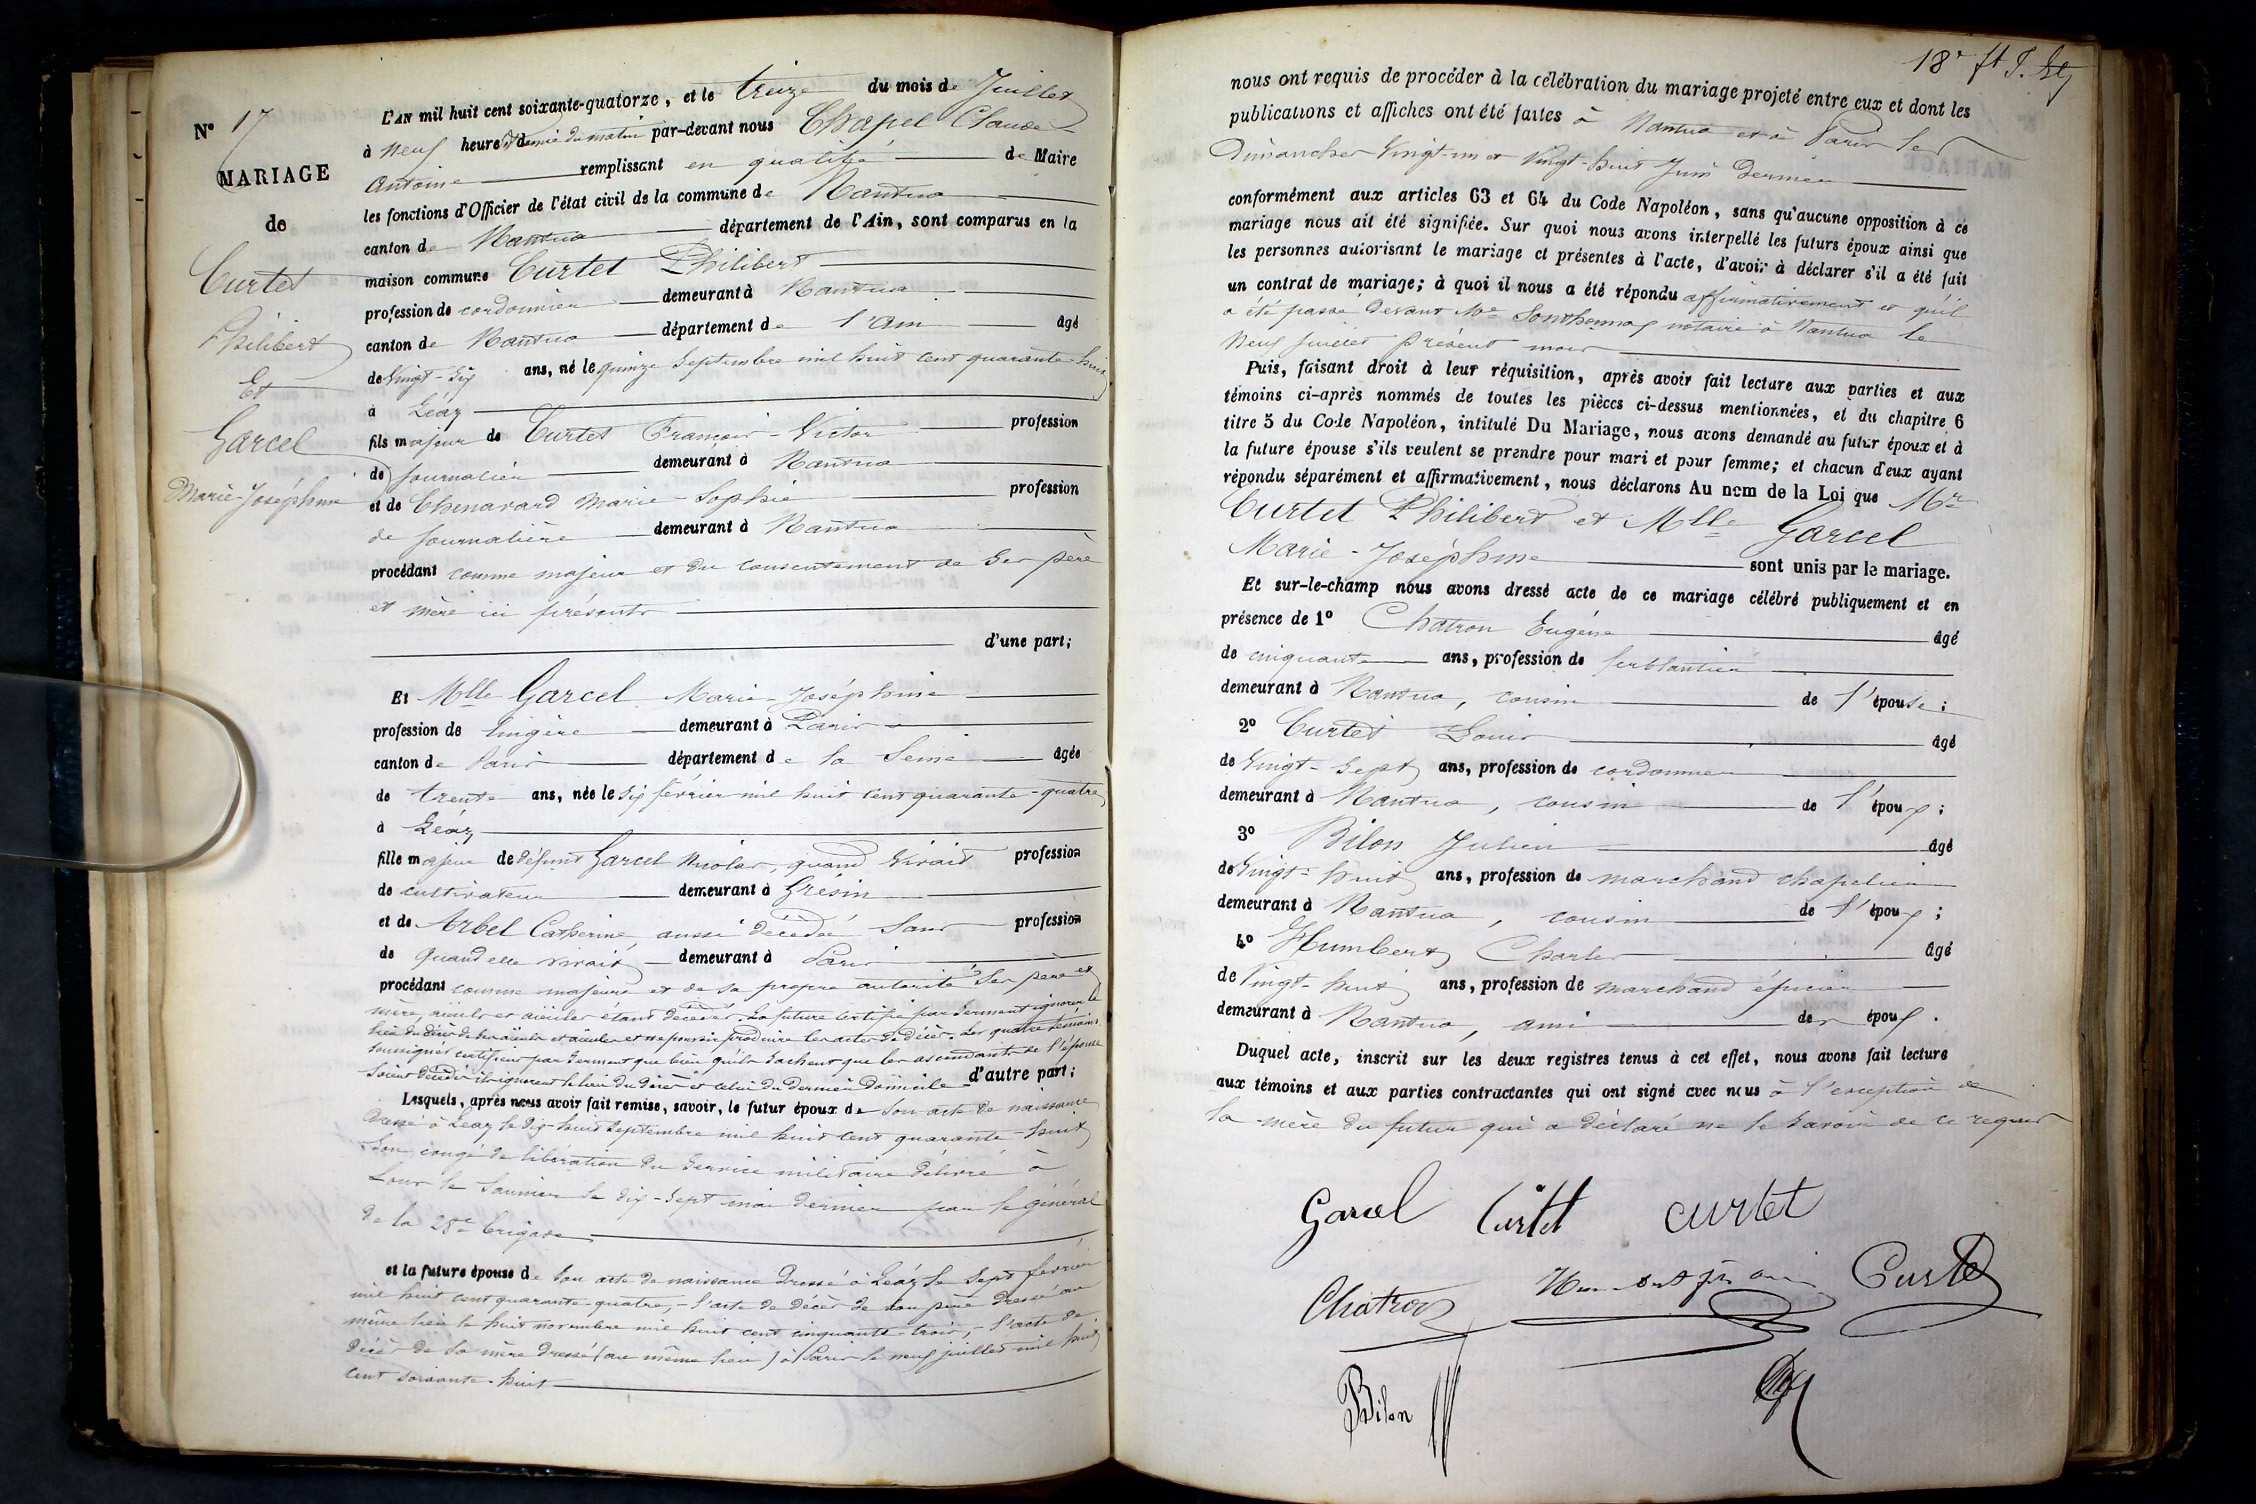 N° 17
MARIAGE
de
Curtet
Philibert
Et
Garcel
Marie-Joséphine
L'AN mil huit cent soixante-quatorze, et le treize du mois de Juillet
à neuf heures & demie du matin par-devant nous Chapel Claude-
Antoine remplissant en qualité de Maire
les fonctions d'Officier de l'état civil de la commune de Nantua
canton de Nantua département de l'Ain, sont comparus en la
maison commune Curtet Philibert
profession de cordonnier demeurant à Nantua
canton de Nantua département de l'Ain âgé
de Vingt-six ans, né le quinze Septembre mil huit cent quarante-huit
à Léaz
fils majeur de Curtet François-Victor profession
de journalier demeurant à Nantua
et de Chenavard Marie-Sophie profession
de journalière demeurant à Nantua
procédant comme majeur et du consentement de ses père
et mère ici présents
d'une part;
Et Mlle Garcel Marie-Joséphine
profession de lingère demeurant à Paris
canton de Paris département de la Seine âgée
de trente ans, née le six février mil huit cent quarante-quatre
à Léaz
fille majeure de défunt Garcel Nicolas, quand vivait profession
de cultivateur demeurant à Grésin
et de Arbel Catherine, aussi décédée sans profession
de quand elle vivait demeurant à Paris
procédant comme majeure et de sa propre autorité ses père et
mère, aïeuls et aïeules étant décédés. La future certifie par serment ignorer le
lieu du décès de ses aïeuls et aïeules et ne pouvoir produire les actes de décès. Les quatre témoins
soussignés certifient par serment que bien qu'ils sachent que les ascendants de l'épouse
soient décédés ils ignorent le lieu du décès et celui du dernier domicile d'autre part;
Lesquels, après nous avoir fait remise, savoir, le futur époux de son acte de naissance
dressé à Léaz le dix-huit Septembre mil huit cent quarante-huit
Son congé de libération du service militaire délivré à
Lons le Saunier le dix-sept mai dernier par le général
de la 28e brigade
et la future épouse de son acte de naissance dressé à Léaz le sept février
mil huit cent quarante-quatre, - l'acte de décès de son père dressé au
même lieu le huit novembre mil huit cent cinquante-trois, - l'acte de
décès de sa mère dressé (au même lieu) à Paris le neuf juillet mil huit
cent soixante-huit
nous ont requis de procéder à la célébration du mariage projeté entre eux et dont les
publications et affiches ont été faites à Nantua et à Paris les
Dimanches Vingt-un et Vingt-huit Juin dernier
conformément aux articles 63 et 64 du Code Napoléon, sans qu'aucune opposition à ce
mariage nous ait été signifiée. Sur quoi nous avons interpellé les futurs époux ainsi que
les personnes autorisant le mariage et présentes à l'acte, d'avoir à déclarer s'il a été fait
un contrat de mariage; à quoi il nous a été répondu affirmativement et qu'il
a été passé devant Me Sonthonnax notaire à Nantua le
neuf juillet présent mois
Puis, faisant droit à leur réquisition, après avoir fait lecture aux parties et aux
témoins ci-après nommés de toutes les pièces ci-dessus mentionnées, et du chapitre 6
titre 5 du Code Napoléon, intitulé Du Mariage, nous avons demandé au futur époux et à
la future épouse s'ils veulent se prendre pour mari et pour femme; et chacun d'eux ayant
répondu séparément et affirmativement, nous déclarons Au nom de la Loi que Mr
Curtet Philibert et Mlle Garcel
Marie-Joséphine sont unis par le mariage.
Et sur-le-champ nous avons dressé acte de ce mariage célébré publiquement et en
présence de 1° Chatron Eugène âgé
de cinquante ans, profession de ferblantier
demeurant à Nantua, cousin de l'épouse;
2° Curtet Louis âgé
de Vingt-Sept ans, profession de cordonnier
demeurant à Nantua, cousin de l'époux;
3° Bilon Julien âgé
de Vingt-huit ans, profession de marchand chapelier
demeurant à Nantua, cousin de l'époux;
4° Humbert Charles âgé
de Vingt-huit ans, profession de marchand épicier
demeurant à Nantua, ami des époux.
Duquel acte, inscrit sur les deux registres tenus à cet effet, nous avons fait lecture
aux témoins et aux parties contractantes qui ont signé avec nous à l'exception de
la mère du futur qui a déclaré ne le savoir de ce requis
Garcel Curtet curtet
Chatron Curtet
Bilon